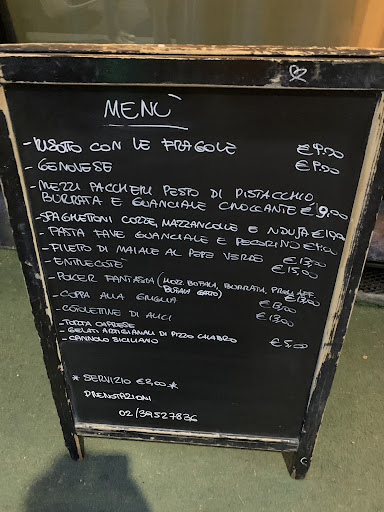 MENÙ
- RISOTTO CON LE FRAGOLE €9.00
- GENOVESE €9.00
- MEZZI PACCHERI PESTO DI PISTACCHIO,
BURRATA E GUANCIALE CROCCANTE €9,00
- SPAGHETTONI COZZE, MAZZANCOLLE E NDUJA €
- PASTA FAVE GUANCIALE E PECORINO €
- FILETO DI MAIALE AL PEPE VERDE €13,00
- ENTRECOTÈ €15,00
- POKER FANTASIA (MOZZ. BUFALA, BURRATA, PROV. AFF. €13,00
BUFALA
- COPPA ALLA GRIGLIA €13,00
- COTOLETTINE DI ALICI €13,00
- TORTA CAPRESE
- GELATI ARTIGIANALI DI PIZZO CALABRO
- CANNOLO SICILIANO €5,00
* SERVIZIO €2,00 *
PRENOTAZIONI
02/39527836